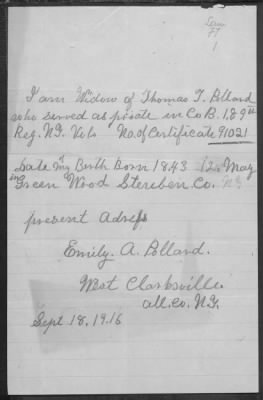 Law
1
I am Widow of Thomas T. Pollard
who served as private in Co B. 189th
Reg. N.Y. Vols No. of Certificate 91021
Date of my Birth Born 1843 12. May
in Green Wood Steuben Co. NY
present Adress
Emily. A. Pollard.
West Clarksville
All. Co. N.Y.
Sept 18, 1916